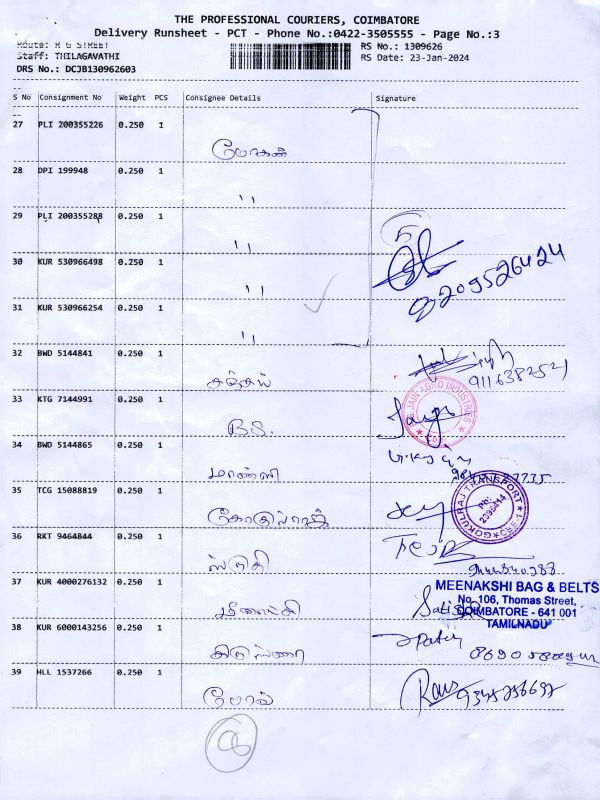 THE PROFESSIONAL COURIERS, COIMBATORE
Delivery Runsheet - PCT - Phone No.:0422-3505555 - Page No.:3
Route: R G STREET
RS No.: 1309626
Staff: THILAGAVATHI
RS Date: 23-Jan-2024
DRS No.: DCJB130962603
S No Consignment No Weight PCS Consignee Details Signature
27 PLI 200355226 0.250 1
மோகன்
28 DPI 199948 0.250 1
"
29 PLI 200355288 0.250 1
"
30 KUR 530966498 0.250 1
"
9209526424
31 KUR 530966254 0.250 1
"
32 BWD 5144841 0.250 1
சஞ்சய்
9116382521
33 KTG 7144991 0.250 1
B.S.
JAIN AGRO INDUSTRIES
34 BWD 5144865 0.250 1
35 TCG 15088819 0.250 1
கோகுல்ராஜ்
GOKULRAJ TRANSPORT
PH: 2396414
CBE-1
36 RKT 9464844 0.250 1
ஸ்ருதி
37 KUR 4000276132 0.250 1
மீனாட்சி
MEENAKSHI BAG & BELTS
No. 106, Thomas Street,
COIMBATORE - 641 001
TAMILNADU
38 KUR 6000143256 0.250 1
கிருஷ்ணா
39 HLL 1537266 0.250 1